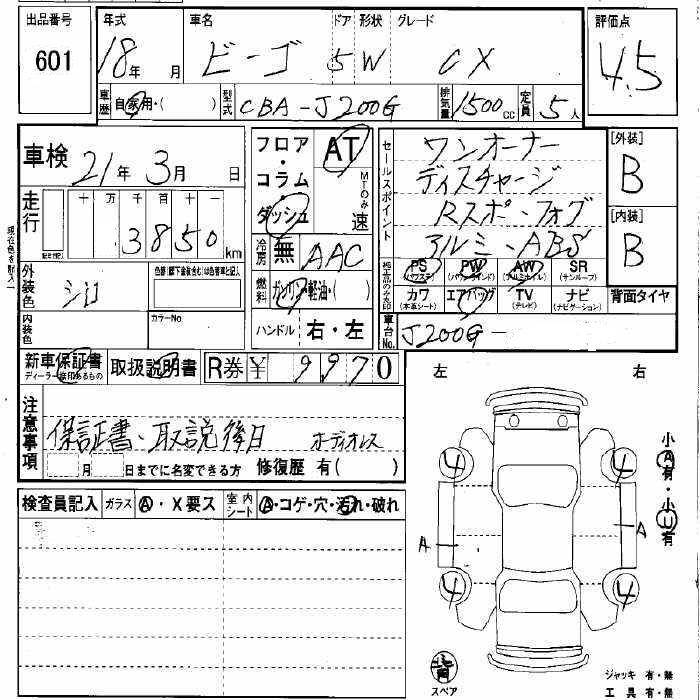 出品番号 年式 車名 ドア 形状 グレード 評価点
601 18年 月 ビーゴ 5 W CX 4.5
車歴 自家用・( ) 型式 CBA-J200G 排気量 1500cc 定員 5人
車検 21年 3月 日
フロア・コラム AT
ダッシュ MTのみ 速
セールスポイント ワンオーナー
ディスチャージ
Rスポ・フォグ
アルミ・ABS
[外装] B
[内装] B
走行 十 万 千 百 十 一
3850km
冷房 無 AAC
純正品のみ丸印 PS (パワステ) PW (パワーウインド) AW (アルミホイル) SR (サンルーフ)
外装色 シロ 色替(認下塗装含む)は色替車と記入
燃料 ガソリン・軽油・( )
カワ (本革シート) エアバッグ TV (テレビ) ナビ (ナビゲーション) 背面タイヤ
内装色 カラーNo
ハンドル 右・左
車台No. J200G-
新車保証書 ディーラー捺印あるもの 取扱説明書 R券 ¥ 9970
注意事項 保証書、取説後日 オーディオレス
月 日までに名変できる方 修復歴 有( )
検査員記入 ガラス A・X要ス 室内シート A・コゲ・穴・汚れ・破れ
左 右
4 4
小A有・小U有
A A
4 4
スペア
ジャッキ 有・無
工具 有・無